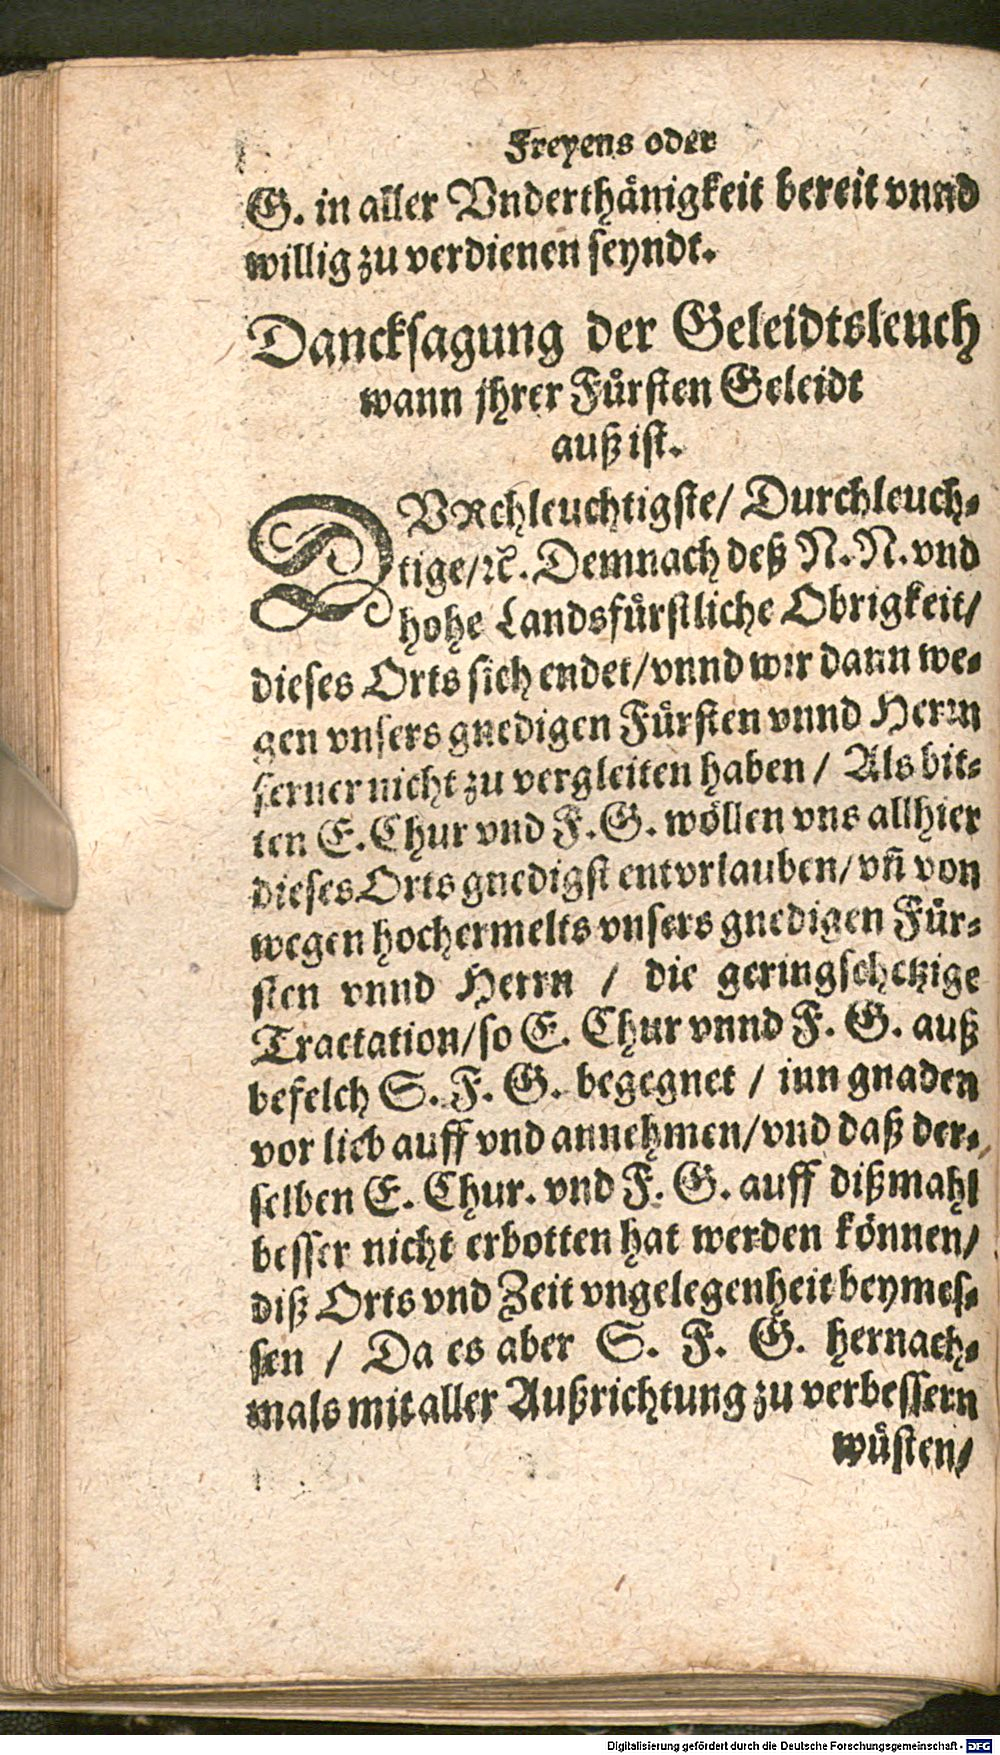 Freyens oder
G. in aller Vnderthänigkeit bereit vnnd
willig zu verdienen seyndt.
Dancksagung der Geleidtsleuch
wann jhrer Fürsten Geleidt
auß ist.
DVRchleuchtigste/ Durchleuch-
tige/ꝛc̃. Demnach deß N. N. vnd
hohe Landsfürstliche Obrigkeit/
dieses Orts sich endet/vnnd wir dann we-
gen vnsers gnedigen Fürsten vnnd Herrn
ferner nicht zu vergleiten haben / Als bit-
ten E. Chur vnd F. G. wöllen vns allhier
dieses Orts gnedigst entvrlauben/ vñ von
wegen hochermelts vnsers gnedigen Für-
sten vnnd Herrn / die geringschetzige
Tractation/so E. Chur vnnd F. G. auß
befelch S. F. G. begegnet / inn gnaden
vor lieb auff vnd annehmen/vnd daß der-
selben E. Chur. vnd F. G. auff dißmahl
besser nicht erbotten hat werden können/
diß Orts vnd Zeit vngelegenheit beymes-
sen / Da es aber S. F. G. hernach-
mals mit aller Außrichtung zu verbessern
wüsten/
Digitalisierung gefördert durch die Deutsche Forschungsgemeinschaft - DFG